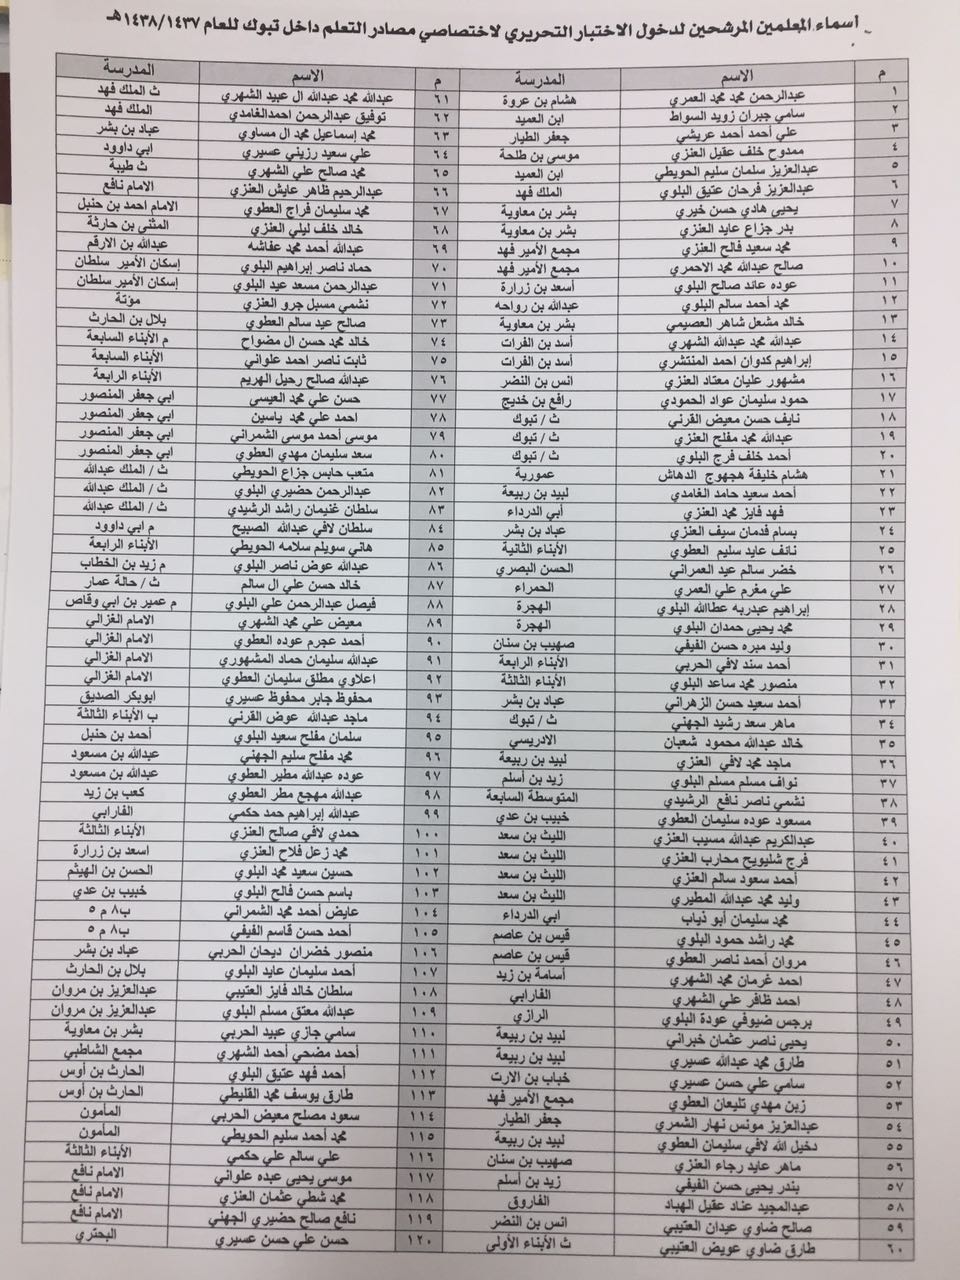 أسماء المعلمين المرشحين لدخول الاختبار التحريري لاختصاصي مصادر التعلم داخل تبوك للعام ١٤٣٨/١٤٣٧هـ
م الاسم المدرسة م الاسم المدرسة
١ عبدالرحمن محمد محمد العمري هشام بن عروة ٦١ عبدالله محمد عبدالله ال عبيد الشهري ث الملك فهد
٢ سامي جبران زويد السواط ابن العميد ٦٢ توفيق عبدالرحمن احمدالغامدي الملك فهد
٣ علي أحمد أحمد عريشي جعفر الطيار ٦٣ محمد إسماعيل محمد ال مساوي عباد بن بشر
٤ ممدوح خلف عقيل العنزي موسى بن طلحة ٦٤ علي سعيد رزيني عسيري ابي داوود
٥ عبدالعزيز سلمان سليم الحويطي ابن العميد ٦٥ محمد صالح علي الشهري ث طيبة
٦ عبدالعزيز فرحان عتيق البلوي الملك فهد ٦٦ عبدالرحيم ظاهر عايش العنزي الامام نافع
٧ يحيى هادي حسن خيري بشر بن معاوية ٦٧ محمد سليمان فراج العطوي الامام احمد بن حنبل
٨ بدر جزاع عايد العنزي بشر بن معاوية ٦٨ خالد خلف ليلي العنزي المثنى بن حارثة
٩ محمد سعيد فالح العنزي مجمع الأمير فهد ٦٩ عبدالله أحمد محمد عفاشه عبدالله بن الارقم
١٠ صالح عبدالله محمد الاحمري مجمع الأمير فهد ٧٠ حماد ناصر إبراهيم البلوي إسكان الأمير سلطان
١١ عوده عائد صالح البلوي أسعد بن زرارة ٧١ عبدالرحمن مسعد عيد البلوي إسكان الأمير سلطان
١٢ محمد أحمد سالم البلوي عبدالله بن رواحه ٧٢ نشمي مسبل جرو العنزي مؤتة
١٣ خالد مشعل شاهر العصيمي بشر بن معاوية ٧٣ صالح عيد سالم العطوي بلال بن الحارث
١٤ عبدالله محمد عبدالله الشهري أسد بن الفرات ٧٤ خالد محمد حسن ال مضواح م الأبناء السابعة
١٥ إبراهيم كدوان احمد المنتشري أسد بن الفرات ٧٥ ثابت ناصر احمد علواني الأبناء السابعة
١٦ مشهور عليان معتاد العنزي انس بن النضر ٧٦ عبدالله صالح رحيل الهريم الأبناء الرابعة
١٧ حمود سليمان عواد الحمودي رافع بن خديج ٧٧ حسن علي محمد العيسى ابي جعفر المنصور
١٨ نايف حسن معيض القرني ث / تبوك ٧٨ احمد علي محمد ياسين ابي جعفر المنصور
١٩ عبدالله محمد مفلح العنزي ث / تبوك ٧٩ موسى أحمد موسى الشمراني ابي جعفر المنصور
٢٠ أحمد خلف فرج البلوي ث / تبوك ٨٠ سعد سليمان مهدي العطوي ابي جعفر المنصور
٢١ هشام خليفة هجهوج الدهاش عمورية ٨١ متعب حابس جزاع الحويطي ث / الملك عبدالله
٢٢ أحمد سعيد حامد الغامدي لبيد بن ربيعة ٨٢ عبدالرحمن حضيري البلوي ث / الملك عبدالله
٢٣ فهد فايز محمد العنزي أبي الدرداء ٨٣ سلطان غنيمان راشد الرشيدي ث / الملك عبدالله
٢٤ بسام فدمان سيف العنزي عباد بن بشر ٨٤ سلطان لافي عبدالله الصبيح م ابي داوود
٢٥ نائف عايد سليم العطوي الأبناء الثانية ٨٥ هاني سويلم سلامه الحويطي الأبناء الرابعة
٢٦ خضر سالم عيد العمراني الحسن البصري ٨٦ عبدالله عوض ناصر البلوي م زيد بن الخطاب
٢٧ علي مغرم علي العمري الحمراء ٨٧ خالد حسن علي ال سالم ث / حالة عمار
٢٨ إبراهيم عبدربه عطاالله البلوي الهجرة ٨٨ فيصل عبدالرحمن علي البلوي م عمير بن ابي وقاص
٢٩ محمد يحيى حمدان البلوي الهجرة ٨٩ معيض علي محمد الشهري الامام الغزالي
٣٠ وليد مبره حسن الفيفي صهيب بن سنان ٩٠ أحمد عجرم عوده العطوي الامام الغزالي
٣١ أحمد سند لافي الحربي الأبناء الرابعة ٩١ عبدالله سليمان حماد المشهوري الامام الغزالي
٣٢ منصور محمد ساعد البلوي الأبناء الثالثة ٩٢ اعلاوي مطلق سليمان العطوي الامام الغزالي
٣٣ أحمد سعيد حسن الزهراني عباد بن بشر ٩٣ محفوظ جابر محفوظ عسيري ابوبكر الصديق
٣٤ ماهر سعد رشيد الجهني ث / تبوك ٩٤ ماجد عبدالله عوض القرني ب الأبناء الثالثة
٣٥ خالد عبدالله محمود شعبان الادريسي ٩٥ سلمان مفلح سعيد البلوي أحمد بن حنبل
٣٦ ماجد محمد لافي العنزي لبيد بن ربيعة ٩٦ محمد مفلح سليم الجهني عبدالله بن مسعود
٣٧ نواف مسلم مسلم البلوي زيد بن أسلم ٩٧ عوده عبدالله مطير العطوي عبدالله بن مسعود
٣٨ نشمي ناصر نافع الرشيدي المتوسطة السابعة ٩٨ عبدالله مهجع مطر العطوي كعب بن زيد
٣٩ مسعود عوده سليمان العطوي خبيب بن عدي ٩٩ عبدالله إبراهيم حمد حكمي الفارابي
٤٠ عبدالكريم عبدالله مسيب العنزي الليث بن سعد ١٠٠ حمدي لافي صالح العنزي الأبناء الثالثة
٤١ فرج شليويح محارب العنزي الليث بن سعد ١٠١ محمد زعل فلاح العنزي اسعد بن زرارة
٤٢ أحمد سعود سالم العنزي الليث بن سعد ١٠٢ حسين سعيد محمد البلوي الحسن بن الهيثم
٤٣ وليد محمد عبدالله المطيري الليث بن سعد ١٠٣ باسم حسن فالح البلوي خبيب بن عدي
٤٤ محمد سليمان أبو ذياب ابي الدرداء ١٠٤ عايض أحمد محمد الشمراني ب٨ م ٥
٤٥ محمد راشد حمود البلوي قيس بن عاصم ١٠٥ أحمد حسن قاسم الفيفي ب٨ م ٥
٤٦ مروان أحمد ناصر العطوي قيس بن عاصم ١٠٦ منصور خضران ديحان الحربي عباد بن بشر
٤٧ احمد غرمان محمد الشهري أسامة بن زيد ١٠٧ أحمد سليمان عايد البلوي بلال بن الحارث
٤٨ احمد ظافر علي الشهري الفارابي ١٠٨ سلطان خالد فايز العتيبي عبدالعزيز بن مروان
٤٩ برجس ضيوفي عودة البلوي الرازي ١٠٩ عبدالله معتق مسلم البلوي عبدالعزيز بن مروان
٥٠ يحيى ناصر عثمان خبراني لبيد بن ربيعة ١١٠ سامي جازي عبيد الحربي بشر بن معاوية
٥١ طارق محمد عبدالله عسيري لبيد بن ربيعة ١١١ أحمد مضحي أحمد الشهري مجمع الشاطبي
٥٢ سامي علي حسن عسيري خباب بن الارت ١١٢ أحمد فهد عتيق البلوي الحارث بن أوس
٥٣ زبن مهدي تليعان العطوي مجمع الأمير فهد ١١٣ طارق يوسف محمد القليطي الحارث بن أوس
٥٤ عبدالعزيز مونس نهار الشمري جعفر الطيار ١١٤ سعود مصلح معيض الحربي المأمون
٥٥ دخيل الله لافي سليمان العطوي لبيد بن ربيعة ١١٥ محمد أحمد سليم الحويطي المأمون
٥٦ ماهر عايد رجاء العنزي صهيب بن سنان ١١٦ علي سالم علي حكمي الأبناء الثالثة
٥٧ بندر يحيى حسن الفيفي زيد بن أسلم ١١٧ موسى يحيى عبده علواني الامام نافع
٥٨ عبدالمجيد عناد عقيل الهباد الفاروق ١١٨ محمد شطي عثمان العنزي الامام نافع
٥٩ صالح ضاوي عيدان العتيبي انس بن النضر ١١٩ نافع صالح حضيري الجهني الامام نافع
٦٠ طارق ضاوي عويض العتيبي ث الأبناء الأولى ١٢٠ حسن علي حسن عسيري البحتري